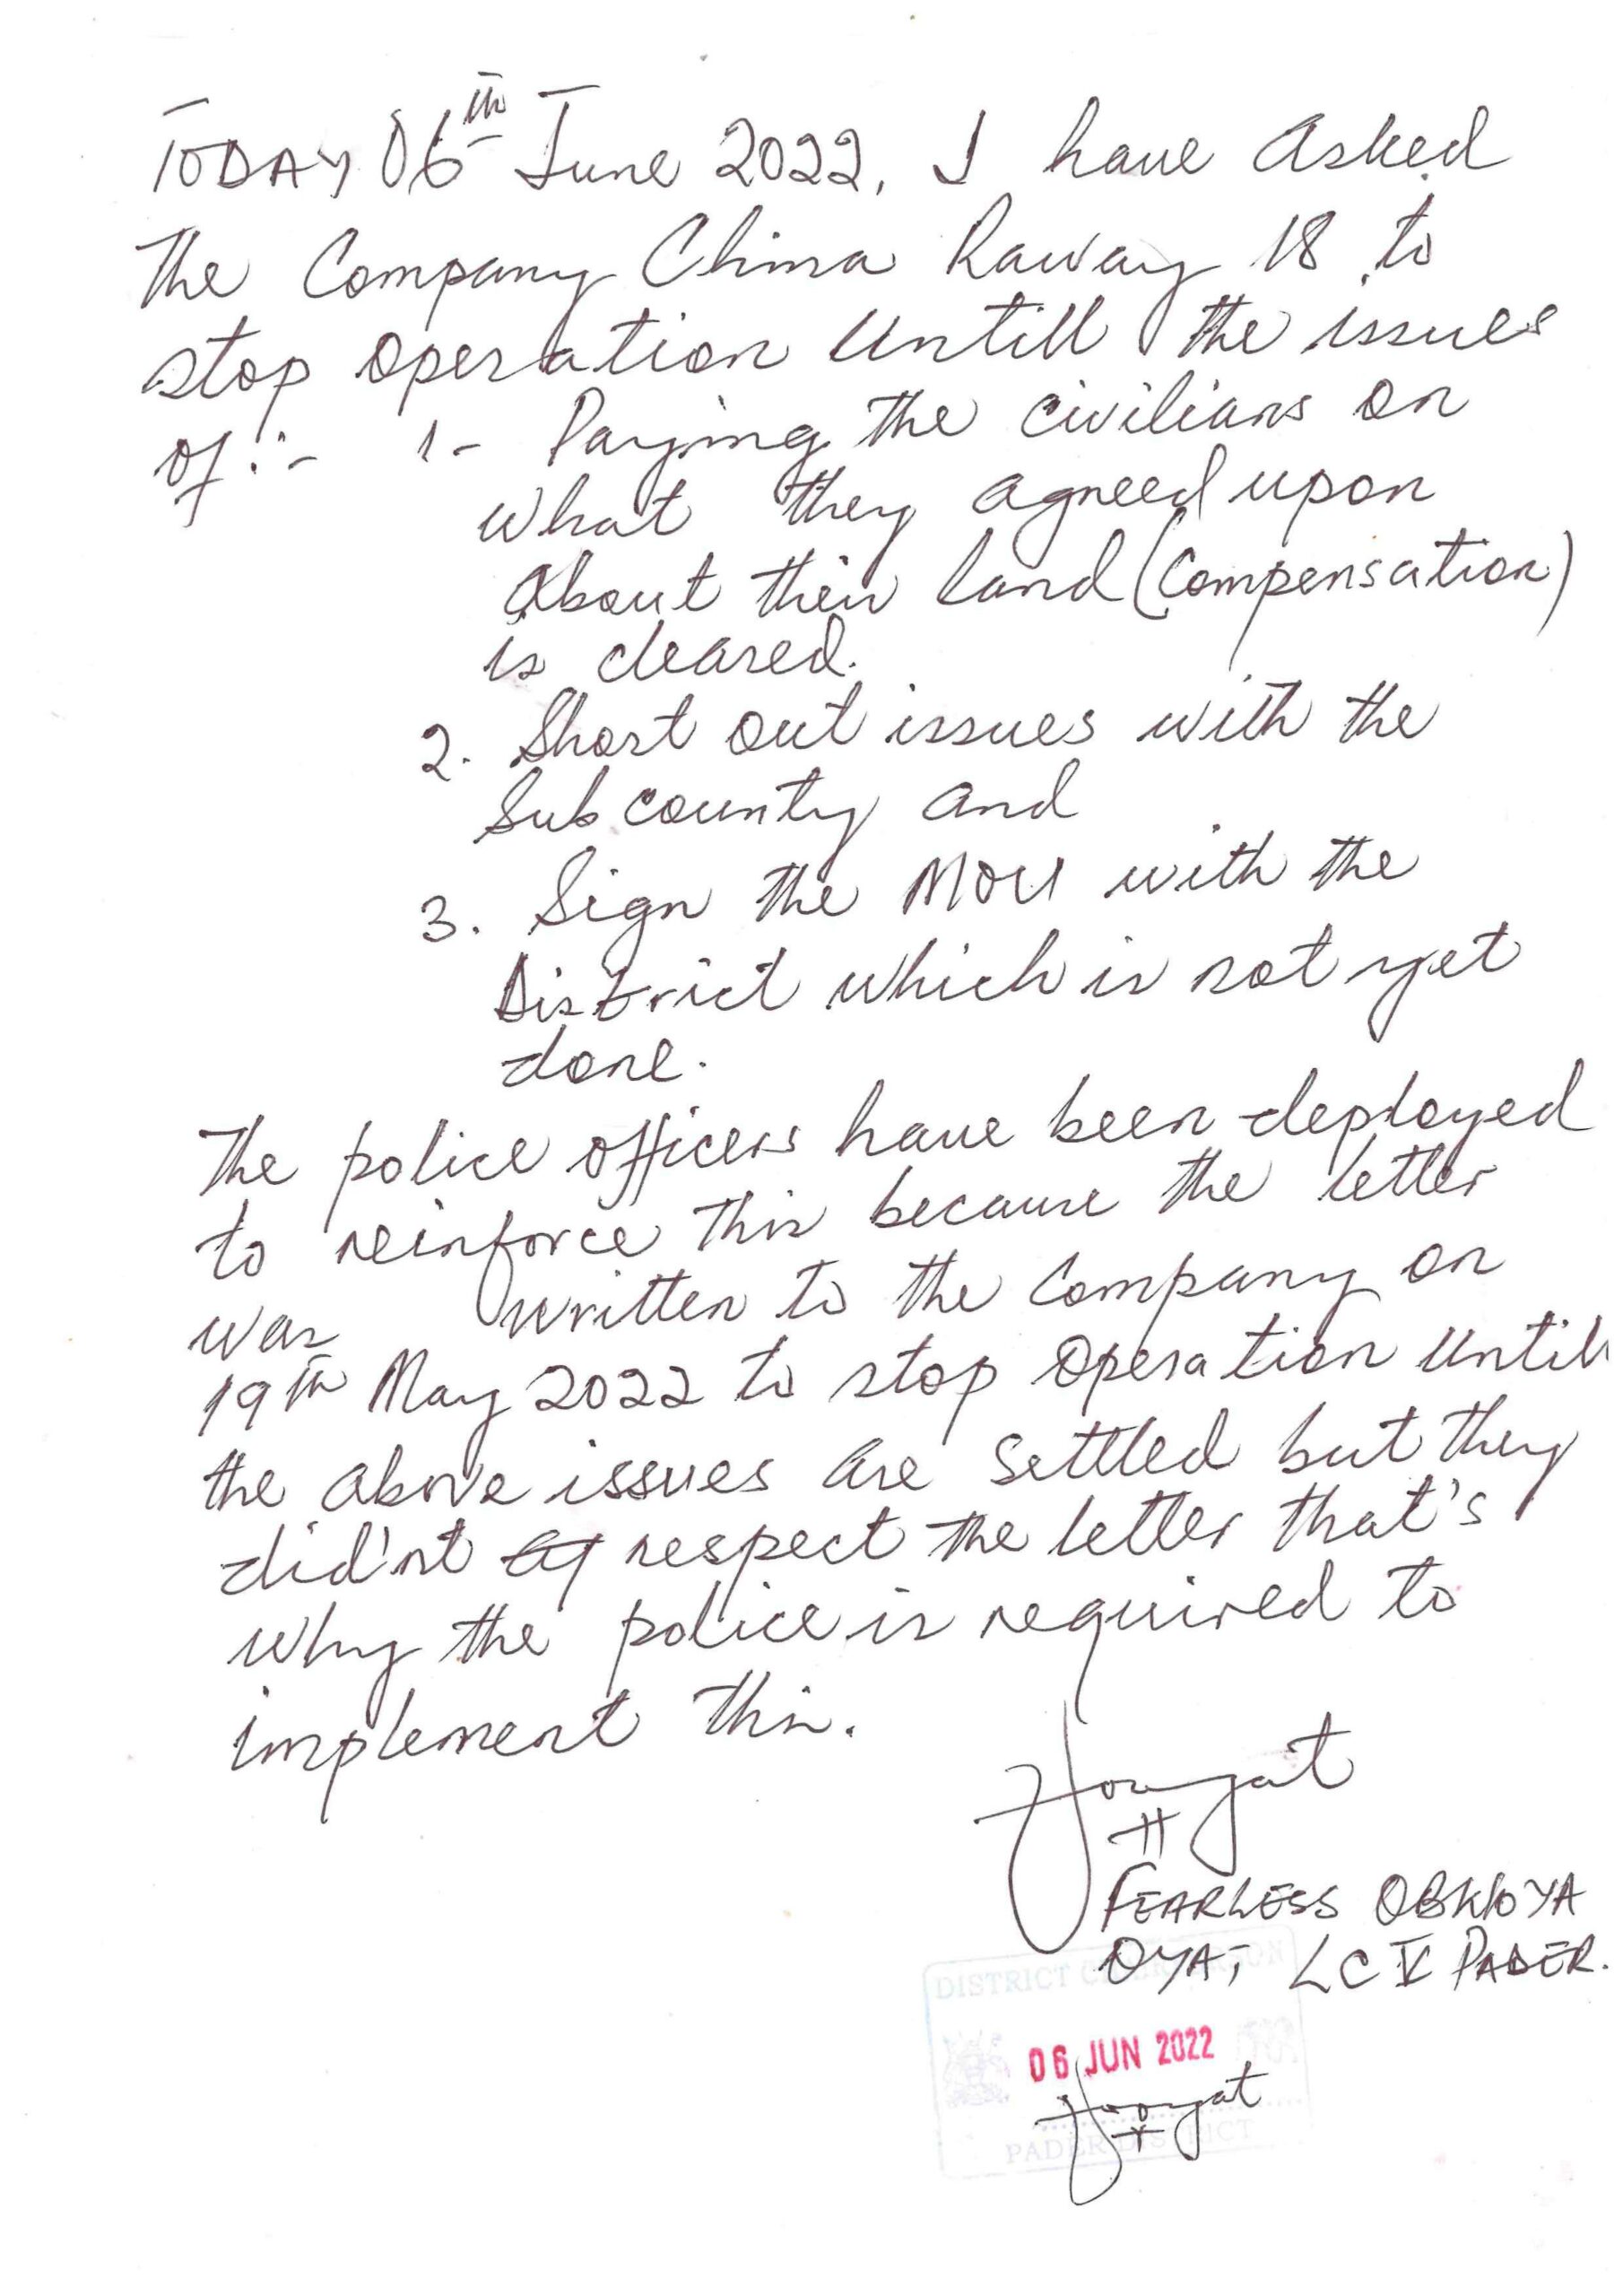 TODAY 06th June 2022, I have asked
the Company China Raway 18 to
stop operation untill the issues
of:- 1- Paying the civilians on
what they agreed upon
about their land (Compensation)
is cleared.
2. Short out issues with the
Sub county and
3. Sign the MOU with the
District which is not yet
done.
The police officers have been deployed
to reinforce this because the letter
was written to the Company on
19th May 2022 to stop operation Untill
the above issues are settled but they
did'nt respect the letter that's
why the police is required to
implement this.
FEARLESS OBWOYA
OYAT LC V PADER.
DISTRICT CHAIRPERSON
06 JUN 2022
PADER DISTRICT